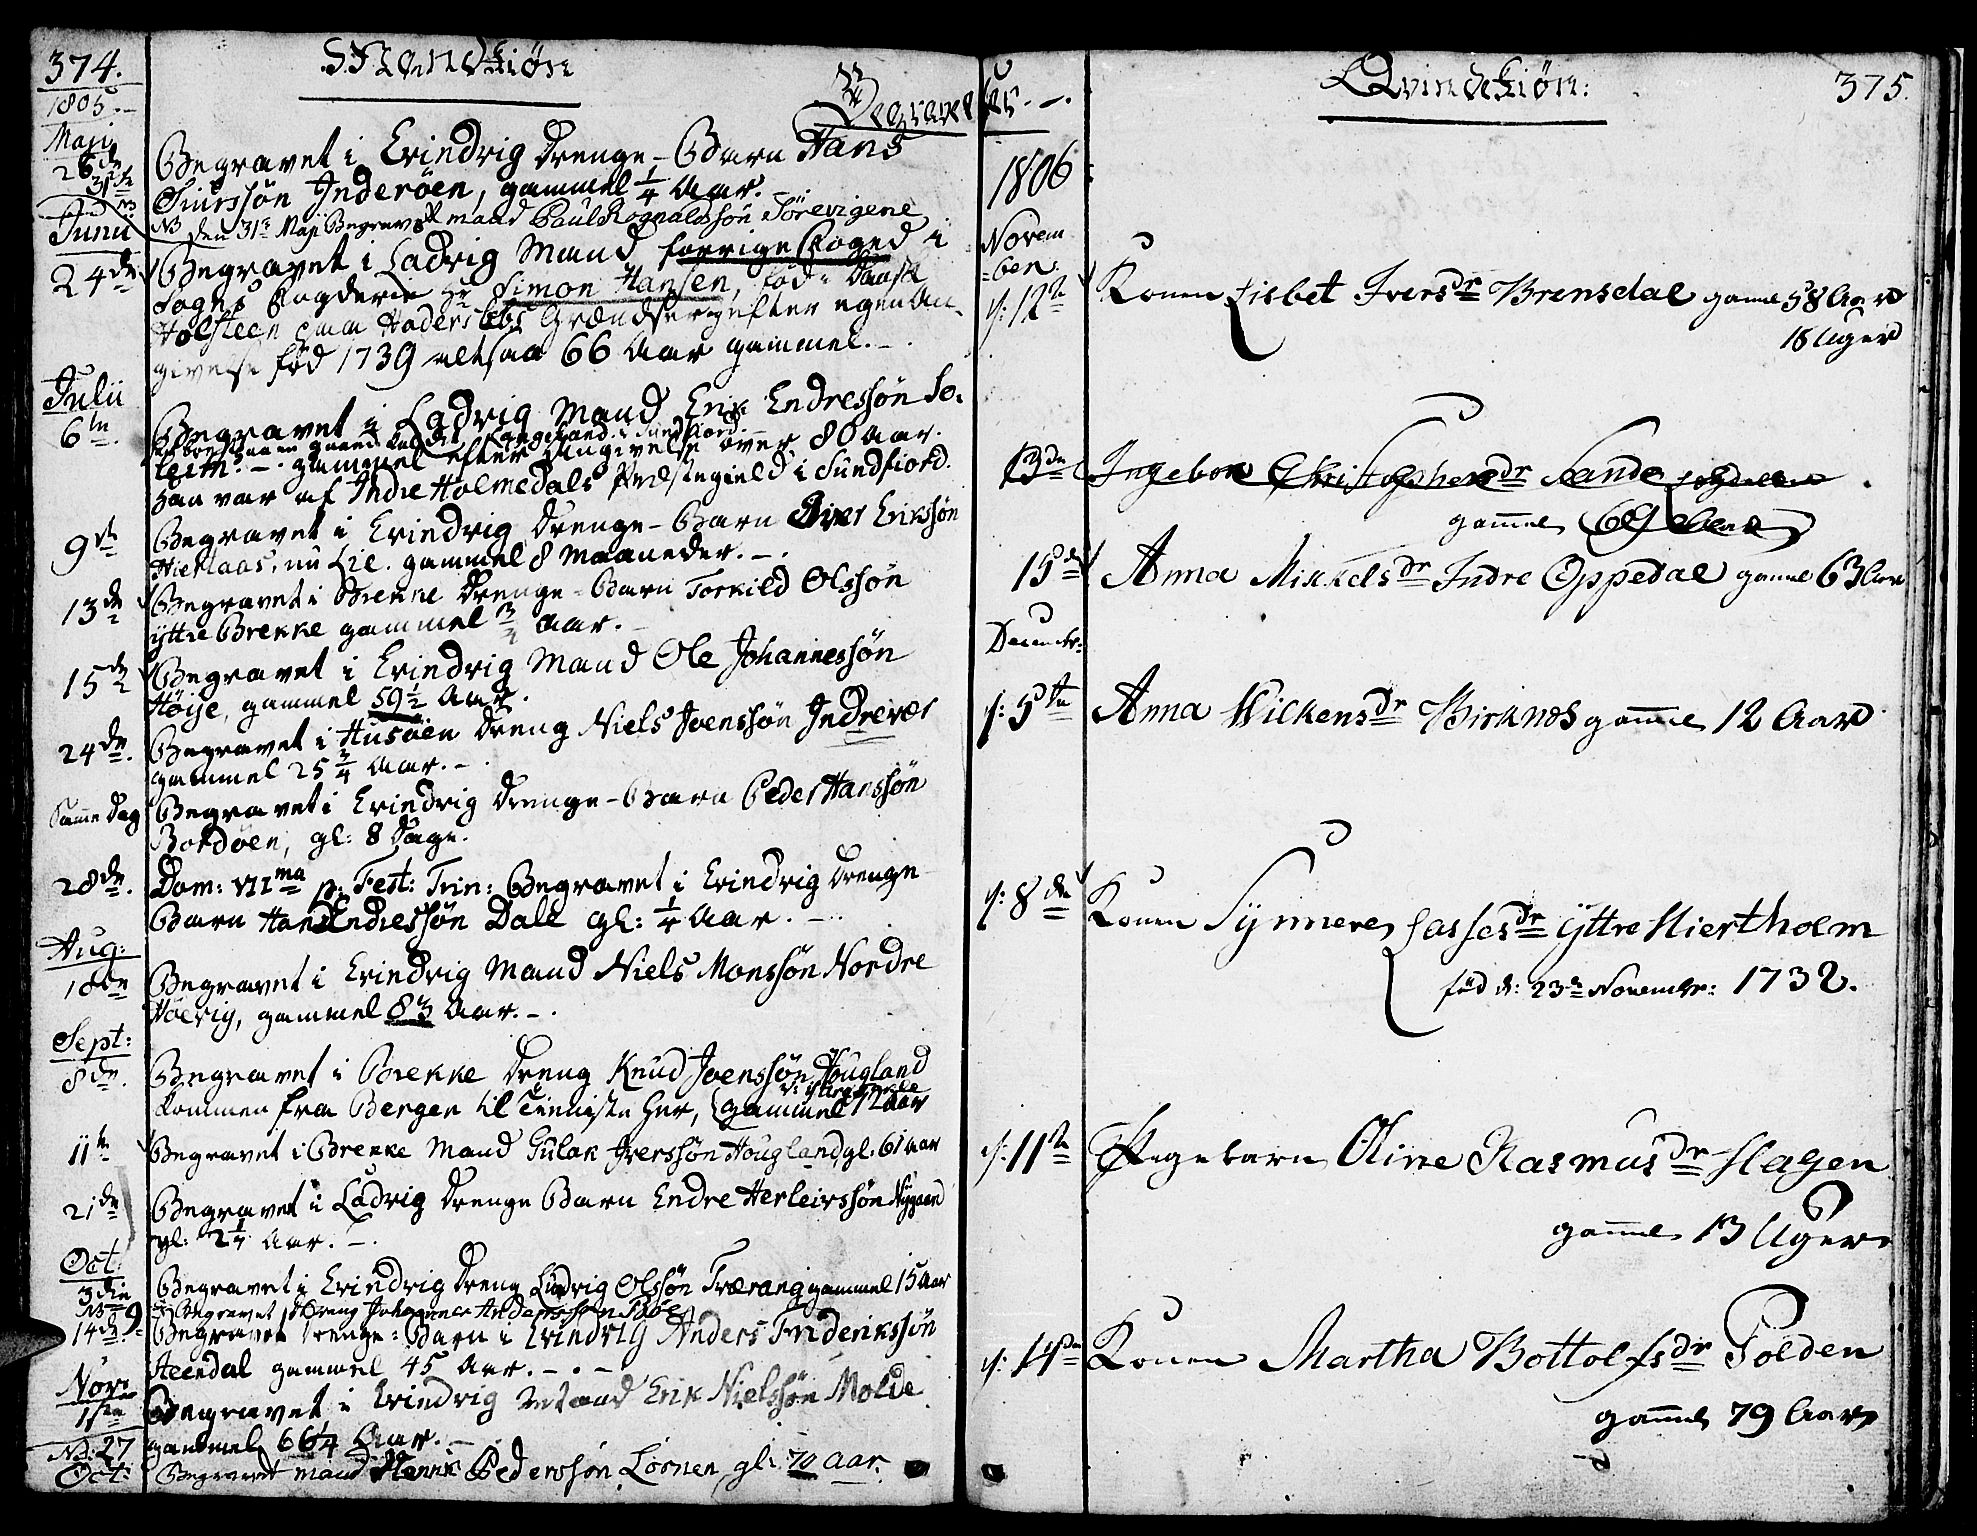 374.
Mandkiøn
Begravet
1805.
Maji
26de
31te
Begravet i Evindvig Drenge-Barn Hans
Siurssøn Inderøen, gammel 1/4 Aar.
NB den 31te Maji Begravet mand Paul Rognaldssøn Sørevigene
Junii
24de
Begravet i Ladvig Mand forrige Foged i
Sogns Fogderie Hr Simon Hansen, fød i Dansk
Holsteen paa Haderslebs Grændser, efter egen An-
givelse fød 1739 altsaa 66 Aar gammel.
Julii
6te
Begravet i Ladvig Mand Erik Endressøn So-
leim. gammel efter Angivelse over 80 Aar.
han var af Indre Holmedals Præstegield i Sundfiord.
9de
Begravet i Evindvig Drenge-Barn Iver Erikssøn
nu Lie. gammel 8 Maaneder.
13de
Begravet i Brekke Drenge-Barn Torkild Olssøn
yttre Brekke gammel 3/4 Aar.
15de
Begravet i Evindvig Mand Ole Johannessøn
Høije, gammel 59 1/2 Aar.
24de
Begravet i Husøen Dreng Niels Joenssøn Indrevær
gammel 25 3/4 Aar.
Samme Dag
Begravet i Evindvig Drenge-Barn Peder Hanssøn
Bordøen, gl: 8 Dage.
28de
Dom: VIIma p: Fest: Trin: Begravet i Evindvig Drenge
Barn Hans Endressøn Dale gl: 1/4 Aar.
Aug:
18de
Begravet i Evindvig Mand Niels Monssøn Nordre
Høevig, gammel 83 Aar.
Sept:
8de
Begravet i Brekke Dreng Knud Joenssøn Hougland
kommen fra Bergen til Tienniste her, gammel 72 Aar
11te
Begravet i Brekke Mand Gulak Iverssøn Hougland, gl. 61 Aar
21de
Begravet i Ladvig Drenge Barn Endre Herleirssøn Nygaard
gl: 2 1/4 Aar.
Oct:
3die
Begravet i Evindvig Dreng Ludvig Olssøn Træerang gammel 15 Aar
NB 9
Begravet Dreng Johannes Anderssøn
14de
Begravet Drenge-Barn i Evindvig Anders Friderikssøn
Steendal gammel 45 Aar.
Nov:
1ste
Begravet i Evindvig Mand Erik Nielssøn Molde
gammel 66 1/4 Aar.
NB: 27
Oct:
Begravet mand Henrik Pederssøn Losnen, gl: 70 Aar.
Qvindekiøn:
375.
1806
Novem
=ber.
d: 12te
Konen Lisbet Ivers dr Brensdal gamel 58 Aar
18 Uger
13de
Ingebor Christophers dr Sande
gamel 69 Aar
15de
Anna Mikkels dr Indre Oppedal gamel 63 Aar
Decembr:
d: 5te
Anna Wilkens dr Birknes gamel 12 Aar
d: 8de
Konen Synneve Lasses dr yttre Hiertholm
fød d: 23de Novembr: 1732.
d: 11te
Pigebarn Oline Rasmus dr Hagen
gamel 13 Uger
d: 14de
Konen Martha Bottolfs dr Tolden
gamel 79 Aar